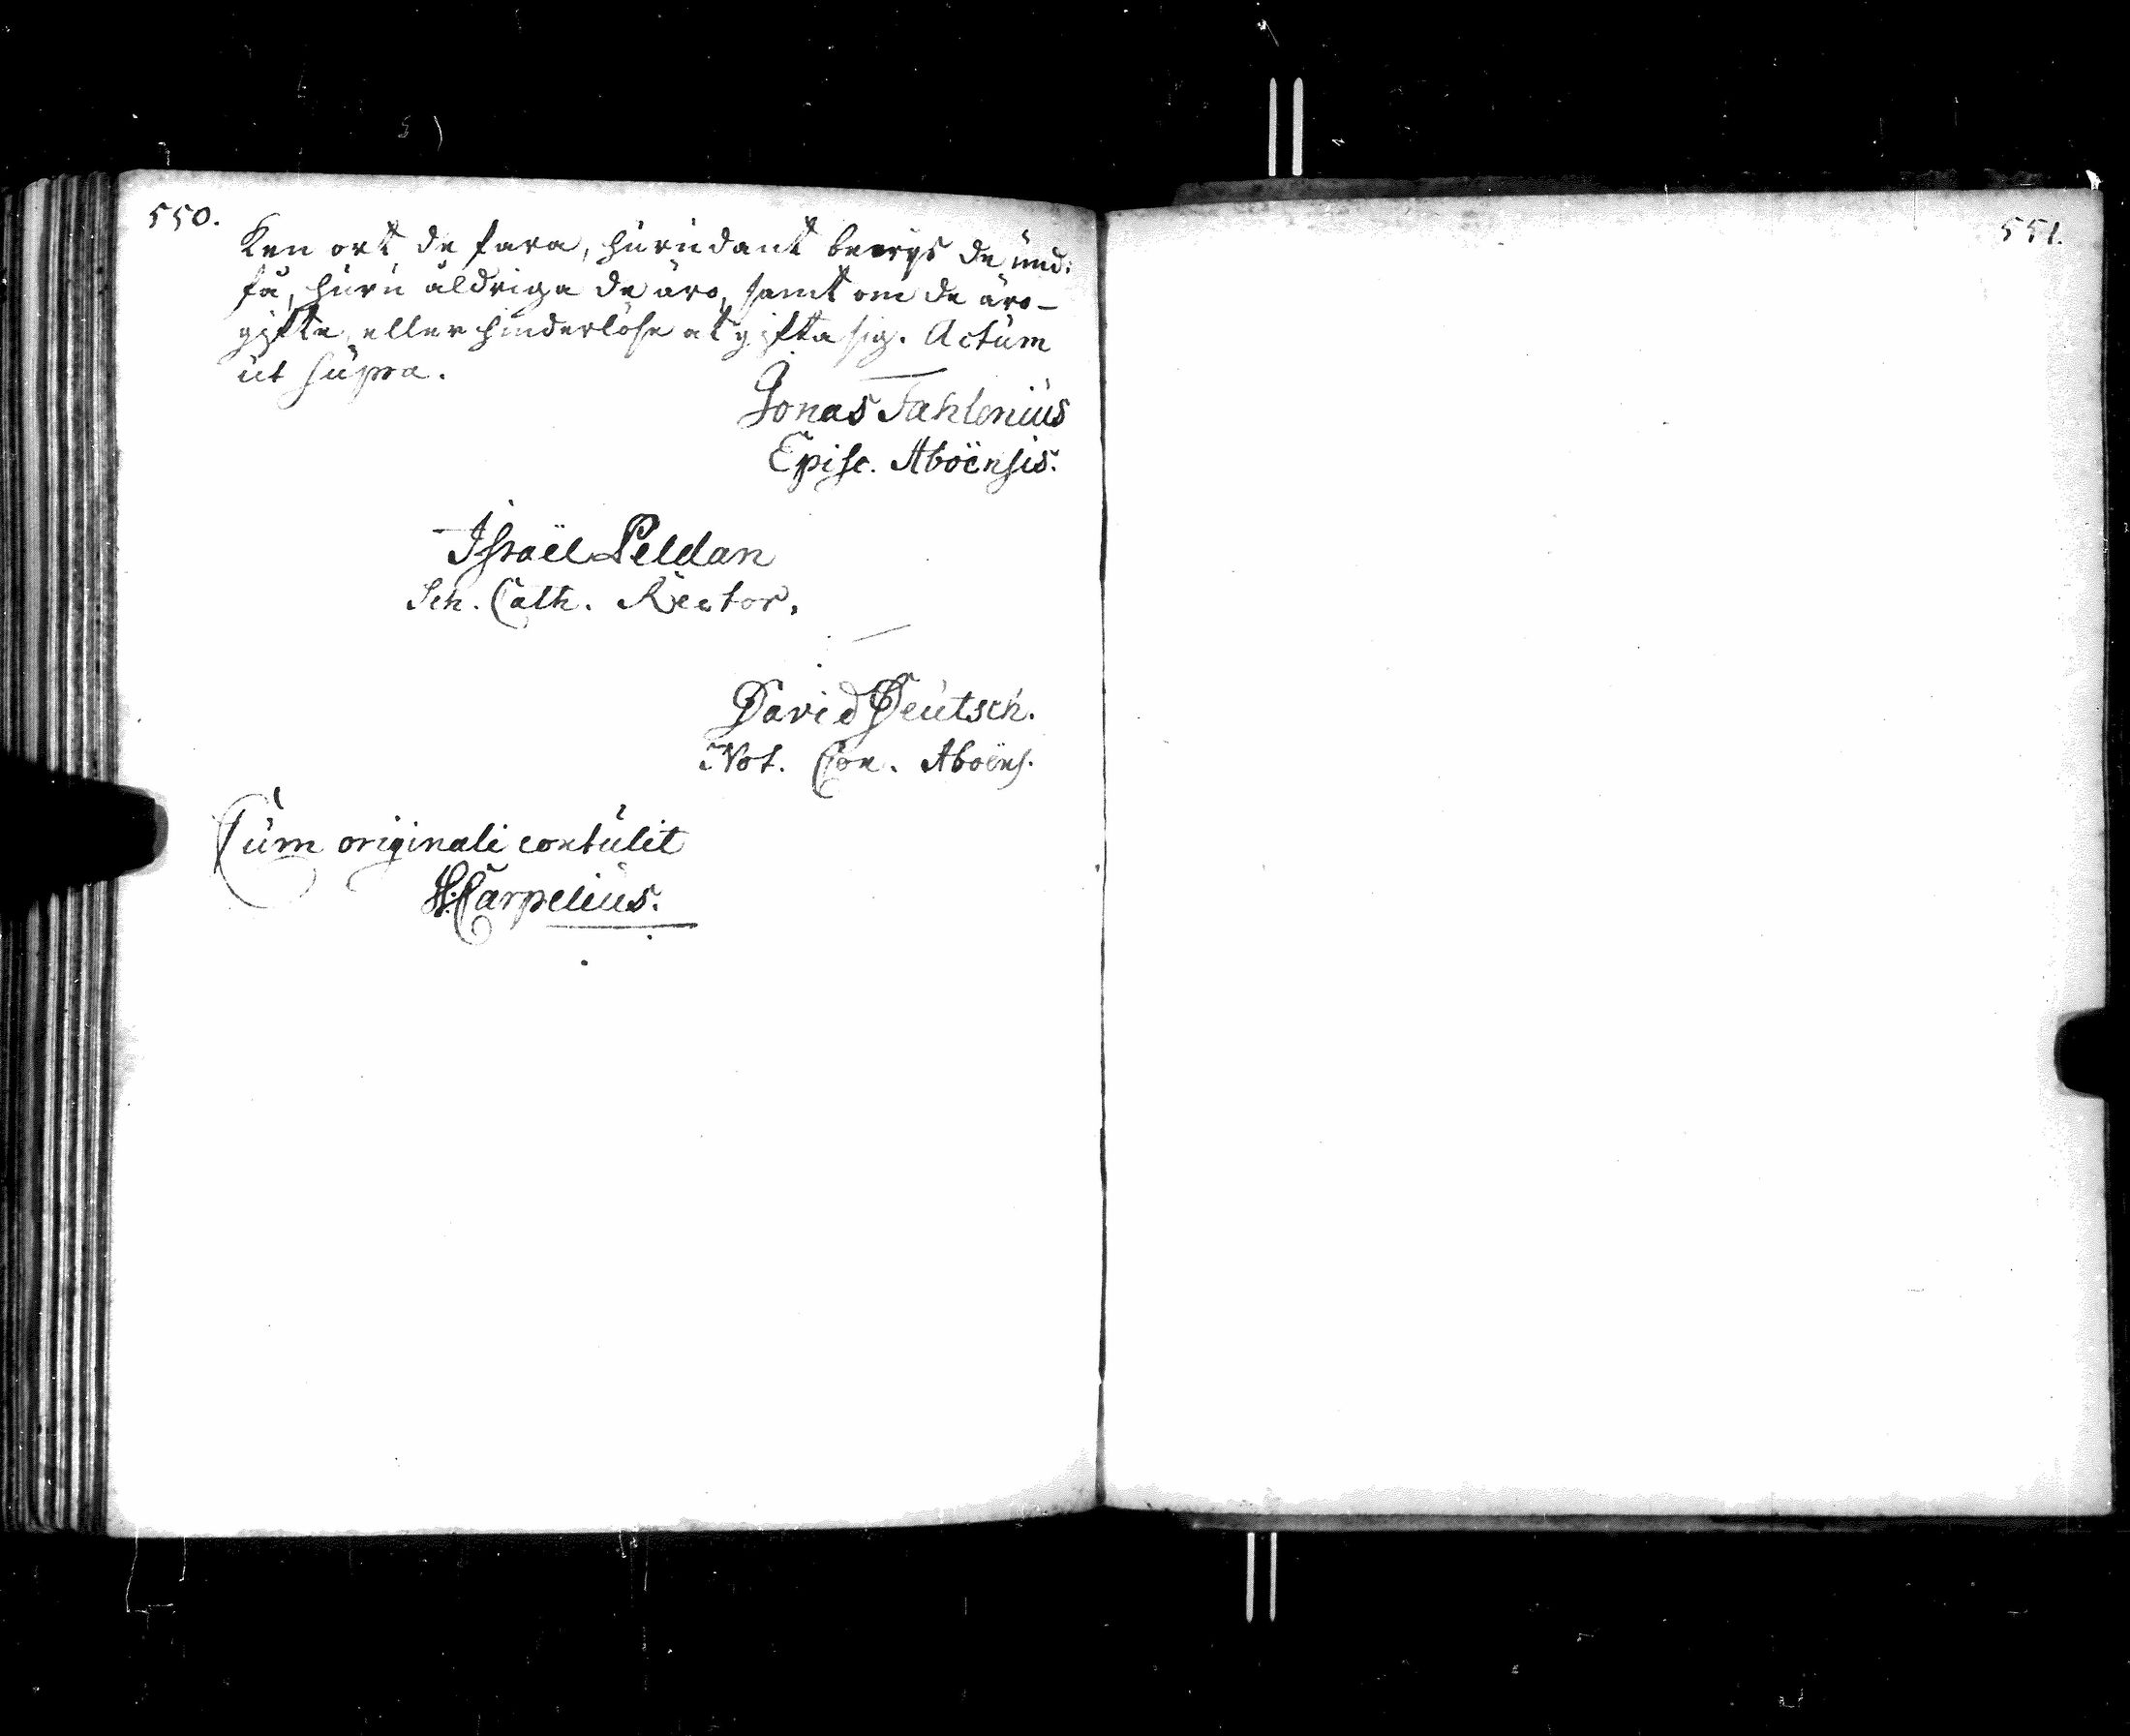 550.
ken ort de fara, hurudant bevys de und:
få, huru åldriga de äro, samt om de äro
gifte, eller hinderlöse at gifta sig. Actum
ut supra.
Jonas Fahlenius
Episc. Aboënsis.
Israël Peldan
Sch. Cath. Rector.
David Deutsch.
Not. Con. Aboëns.
Cum originali contulit
H: Carpelius.
551.